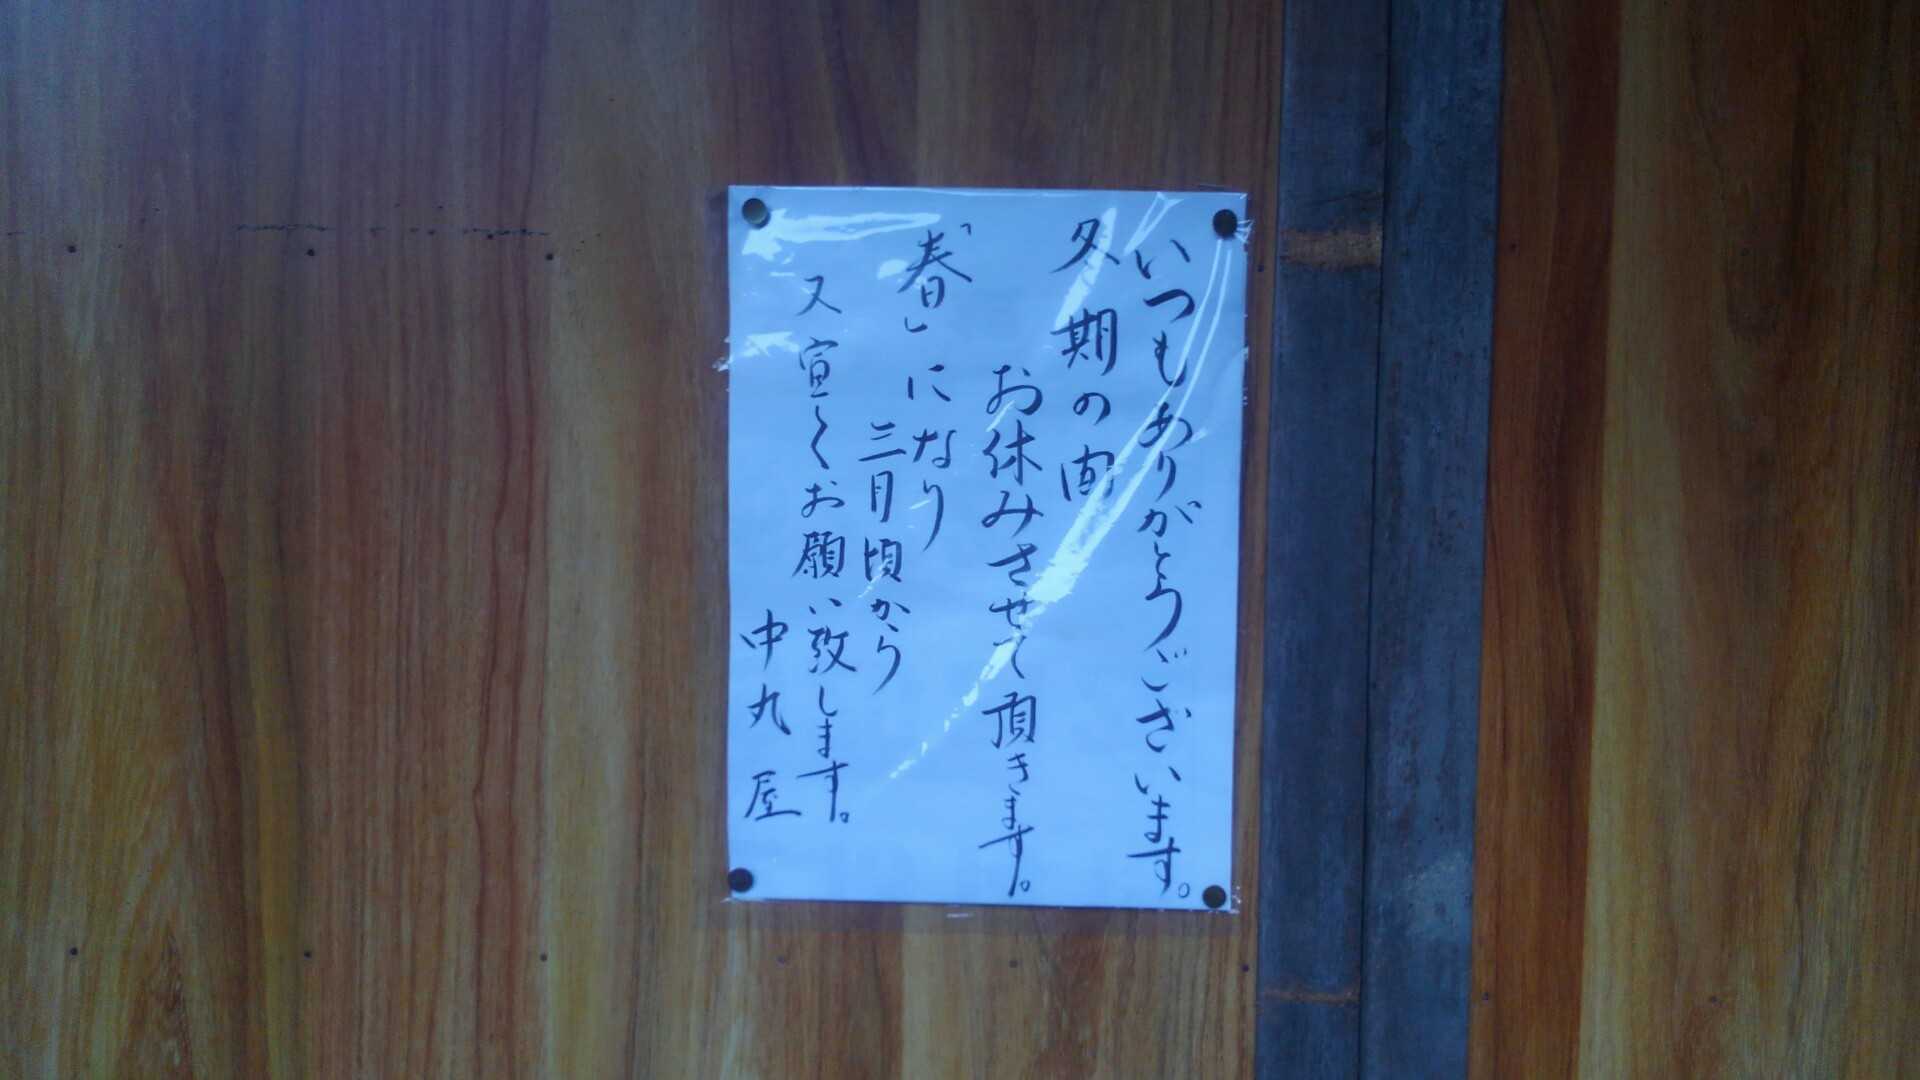 いつもありがとうございます。
冬期の間
お休みさせて頂きます。
「春」になり
三月頃から
又宜しくお願い致します。
中丸屋